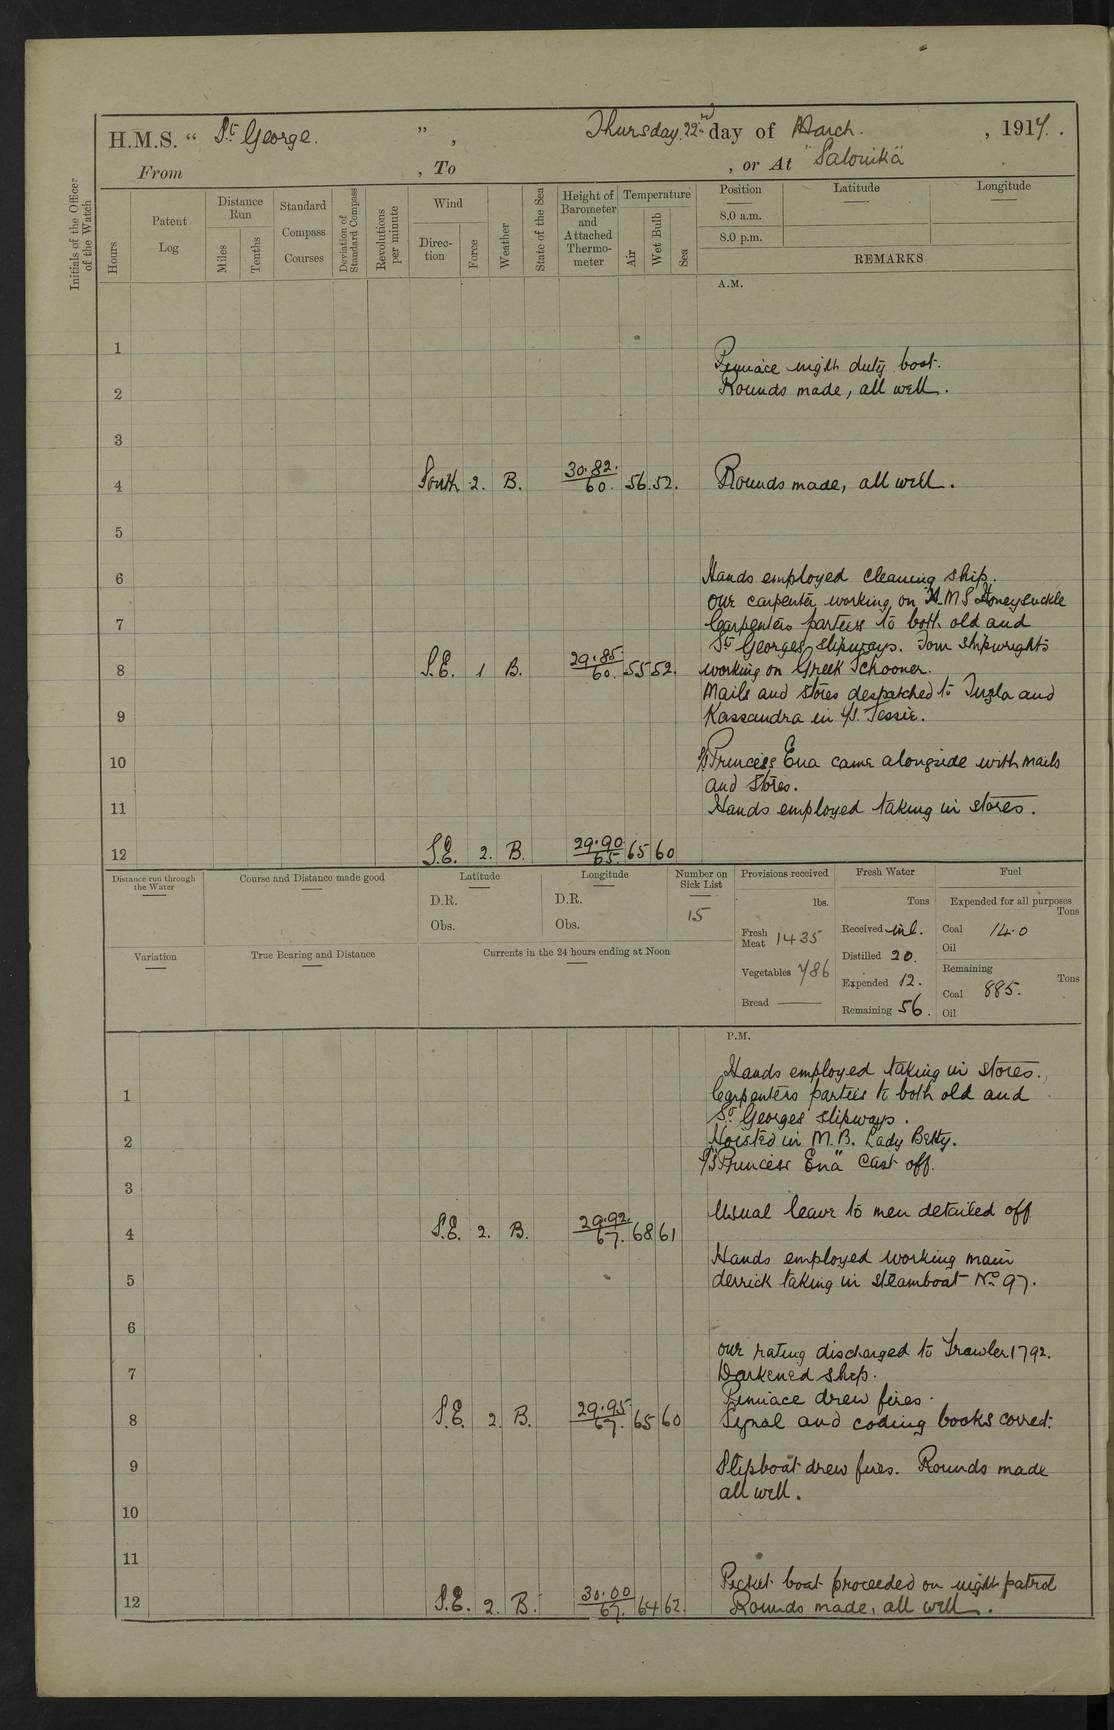 H.M.S. " St. George. ", Thursday, 22nd day of March. , 1917.
From , To , or At "Salonika"
Initials of the Officer of the Watch
Hours
Patent Log
Distance Run
Miles
Tenths
Standard Compass Courses
Deviation of Standard Compass
Revolutions per minute
Wind
Direction
Force
Weather
State of the Sea
Height of Barometer and Attached Thermometer
Temperature
Air
Wet Bulb
Sea
Position
8.0 a.m.
8.0 p.m.
Latitude
Longitude
REMARKS
A.M.
1
Pinnace night duty boat.
2 Rounds made, all well.
3
4 South 2. B. 30.82. 60. 56. 52. Rounds made, all well.
5
6 Hands employed cleaning ship.
our carpenter working on H.M.S Honeysuckle
7 Carpenters parties to both old and
St Georges slipways. Four shipwrights
8 S.E. 1 B. 29.85 60. 55 52. working on Greek Schooner.
Mails and stores despatched to Tuzla and
9 Kassandra in S/S. Jessie.
10 S/S Princess Ena came alongside with mails
and stores.
11 Hands employed taking in stores.
12 S.E. 2. B. 29.90 65. 65 60
Distance run through the Water
Course and Distance made good
Latitude
D.R.
Obs.
Longitude
D.R.
Obs.
Number on Sick List
15
Provisions received
lbs.
Fresh Meat 1435
Vegetables 786
Bread
Fresh Water
Tons
Received nil.
Distilled 20.
Expended 12.
Remaining 56.
Fuel
Expended for all purposes
Tons
Coal 14.0
Oil
Remaining
Tons
Coal 885.
Oil
Variation
True Bearing and Distance
Currents in the 24 hours ending at Noon
P.M.
Hands employed taking in stores.
1 Carpenters parties to both old and
St Georges slipways.
2 Hoisted in M.B. Lady Betty.
S/S "Princess Ena" cast off.
3
Usual leave to men detailed off
4 S.E. 2. B. 29.92. 67. 68 61
Hands employed working main
5 derrick taking in steamboat No. 97.
6
our rating discharged to Trawler 1792.
7 Darkened ship.
Pinnace drew fires.
8 S.E. 2. B. 29.95 67. 65 60 Signal and coding books correct.
9 Slipboat drew fires. Rounds made
all well.
10
11
Picket boat proceeded on night patrol
12 S.E. 2. B. 30.00 67. 64 62. Rounds made, all well.